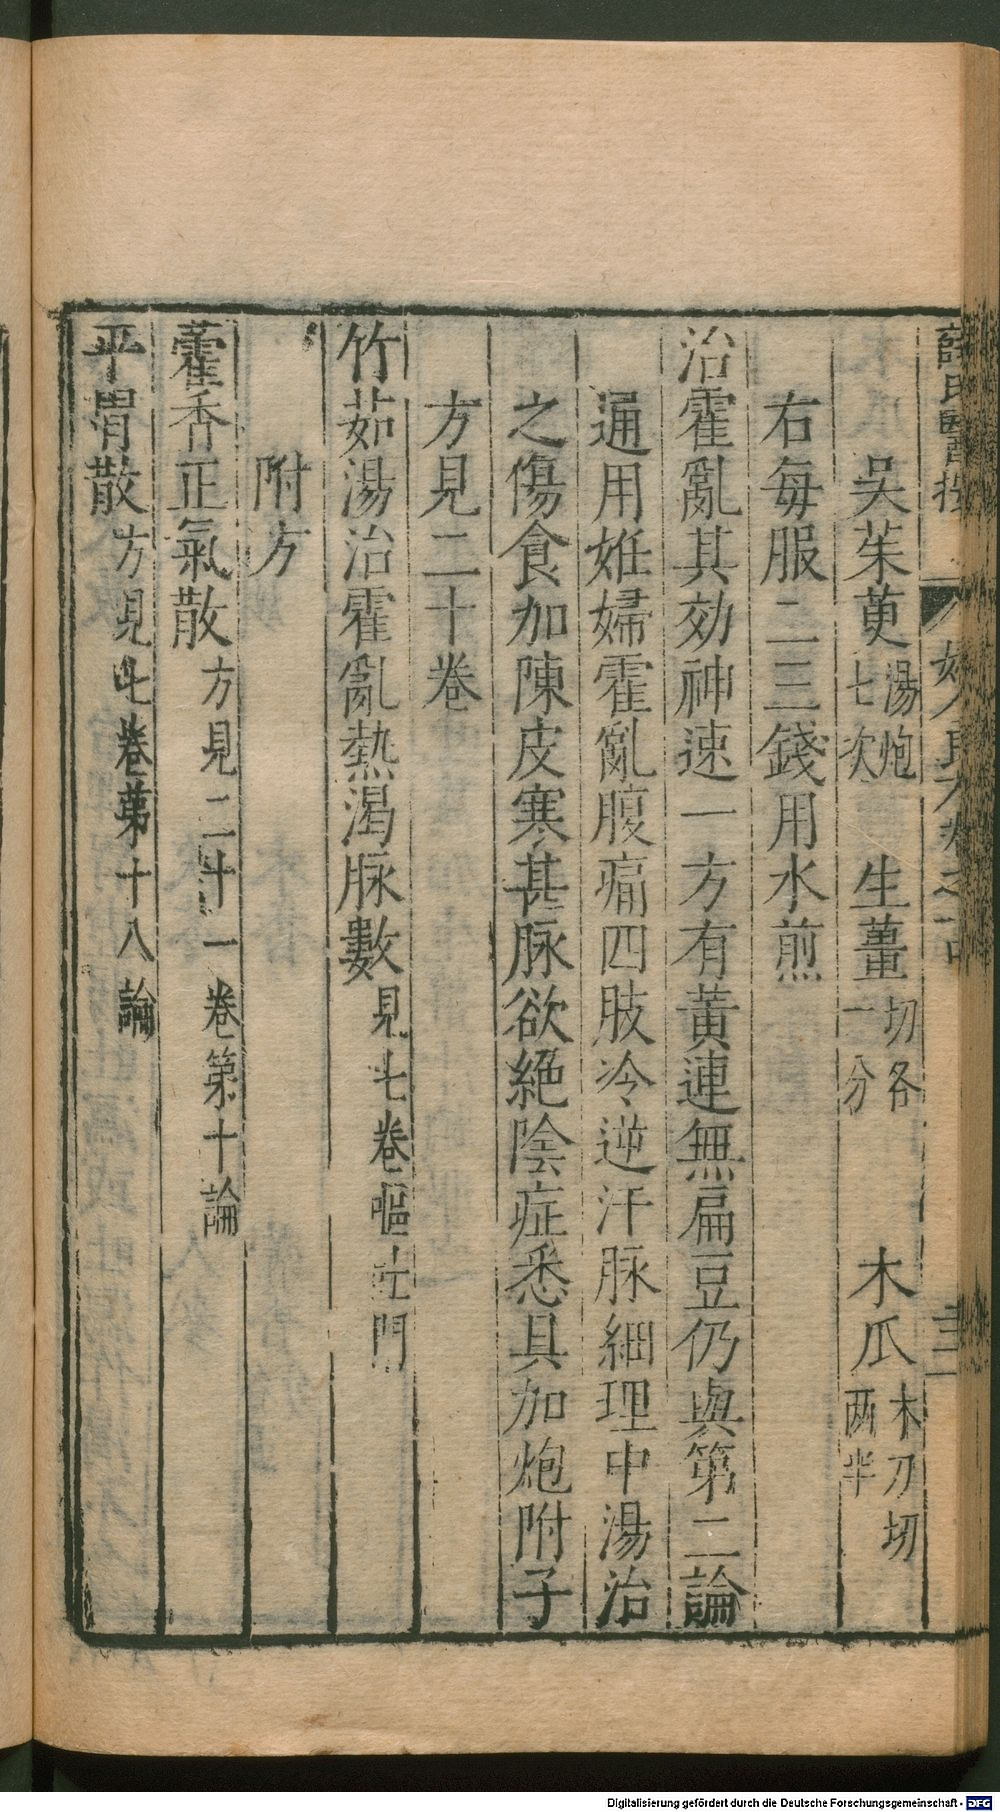 吳茱萸湯炮七次 生薑切各一分 木瓜木刀切両半
右每服二三錢用水煎
治霍亂其効神速一方有黃連無扁豆仍與第二論
通用姙婦霍亂腹痛四肢冷逆汗脉細理中湯治
之傷食加陳皮寒甚脉欲絕陰症悉具加炮附子
方見二十卷
竹茹湯治霍亂熱渴脉數見七卷嘔吐門
附方
藿香正氣散方見二十一卷第十論
平胃散方見七卷第十八論
Digitalisierung gefördert durch die Deutsche Forschungsgemeinschaft - DFG